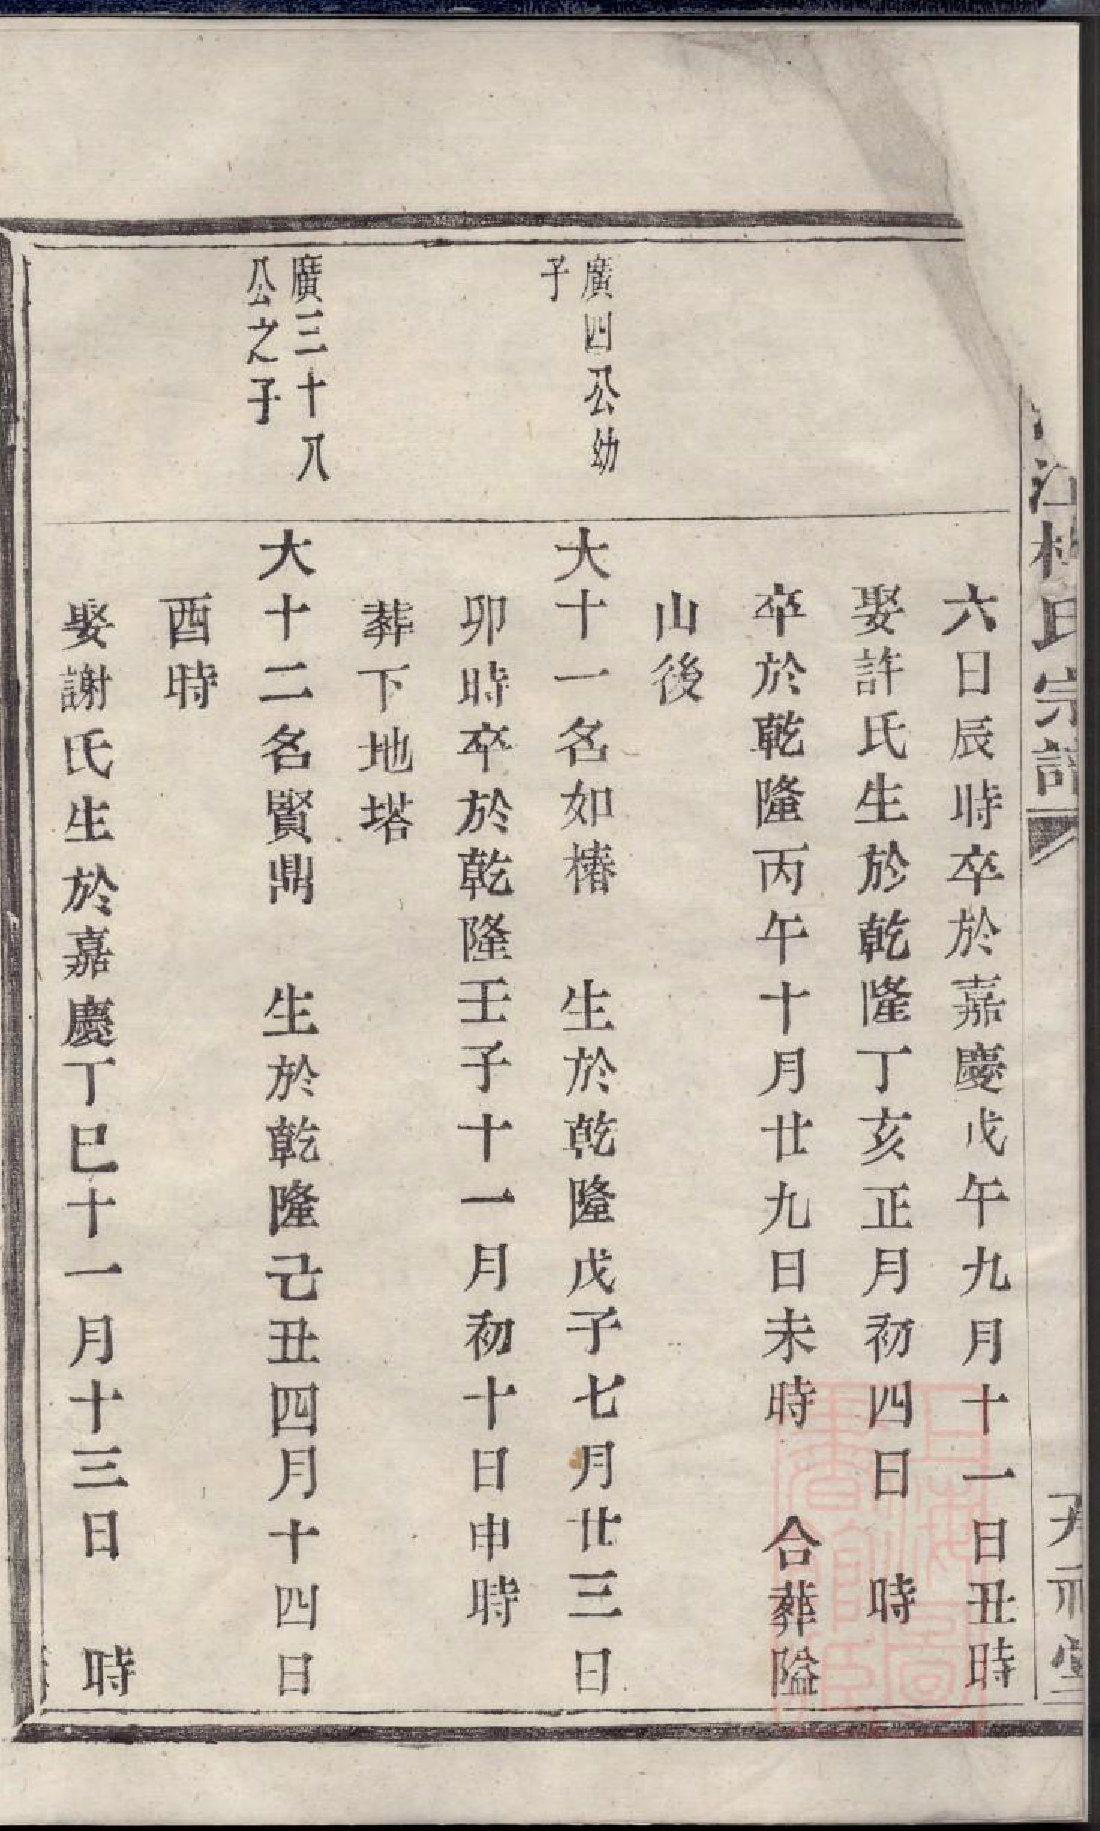 江
氏宗譜
六日辰時卒於嘉慶戊午九月十一日丑時
娶許氏生於乾隆丁亥正月初四日　時
卒於乾隆丙午十月廿九日未時　合葬隘
山後
廣四公幼
子
大十一名如椿　生於乾隆戊子七月廿三日
卯時卒於乾隆壬子十一月初十日申時
葬下地塔
廣三十八
公之子
大十二名賢鼎　生於乾隆己丑四月十四日
酉時
娶謝氏生於嘉慶丁巳十一月十三日　時